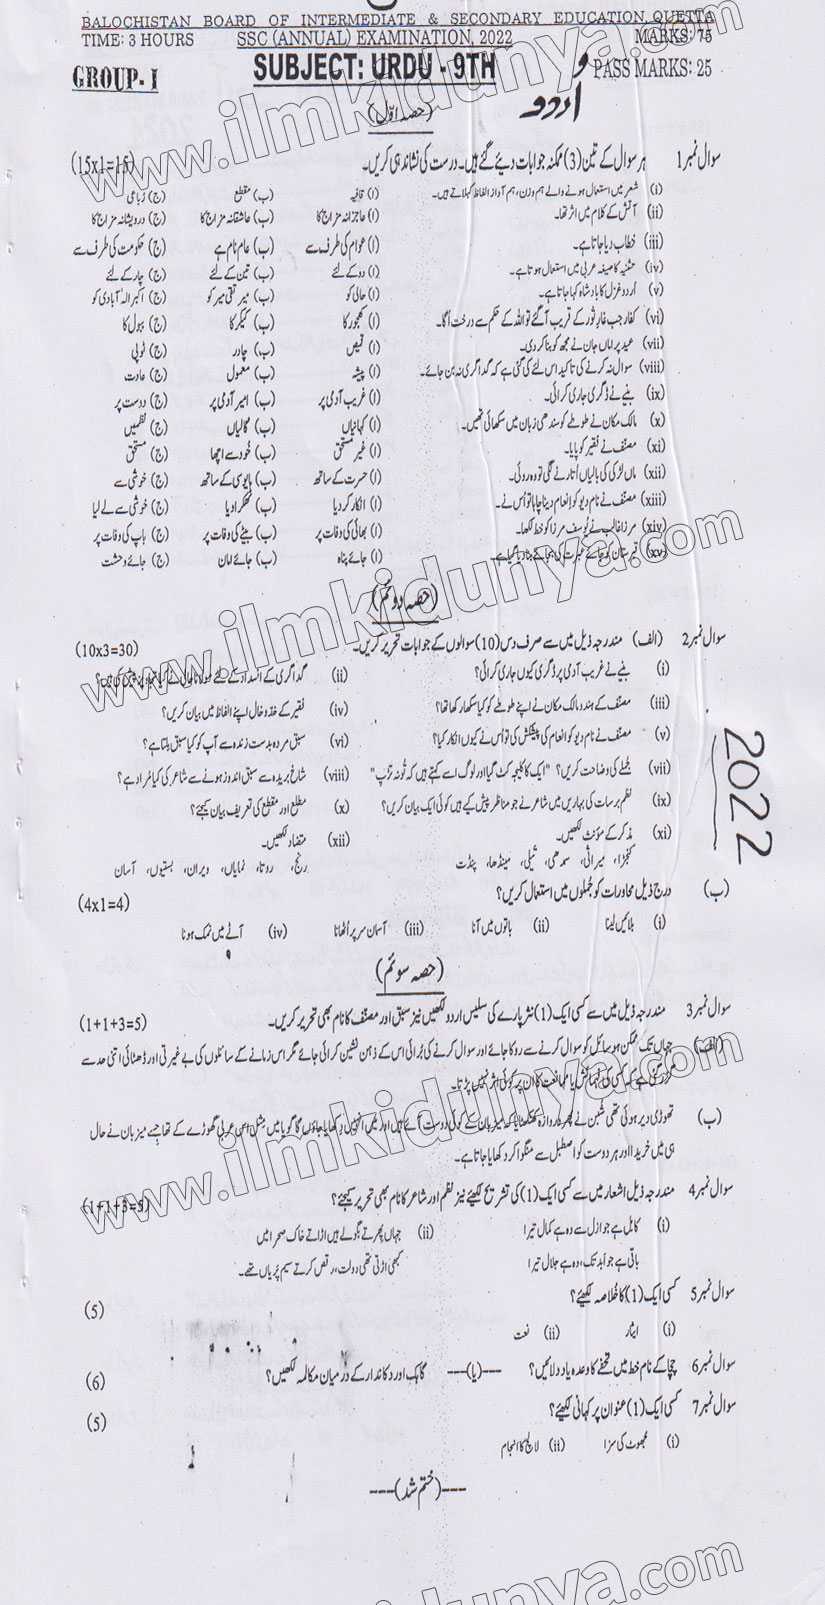 BALOCHISTAN BOARD OF INTERMEDIATE & SECONDARY EDUCATION, QUETTA
TIME: 3 HOURS SSC (ANNUAL) EXAMINATION, 2022 MARKS: 75
GROUP- I SUBJECT: URDU - 9TH PASS MARKS: 25
اردو
(حصہ اوّل)
سوال نمبر 1 ہر سوال کے تین (3) ممکنہ جوابات دیئے گئے ہیں۔ درست کی نشاندہی کریں۔ (15x1=15)
(i) شعر میں استعمال ہونے والے ہم وزن، ہم آواز الفاظ کہلاتے ہیں۔ (ا) قافیہ (ب) مقطع (ج) رُباعی
(ii) آتش کے کلام میں اثر تھا۔ (ا) عاجزانہ مزاج کا (ب) عاشقانہ مزاج کا (ج) درویشانہ مزاج کا
(iii) خطاب دیا جاتا ہے۔ (ا) عوام کی طرف سے (ب) عام نام ہے (ج) حکومت کی طرف سے
(iv) تثنیہ کا صیغہ عربی میں استعمال ہوتا ہے۔ (ا) دو کے لئے (ب) تین کے لئے (ج) چار کے لئے
(v) اُردو غزل کا بادشاہ کہا جاتا ہے۔ (ا) حالی کو (ب) میر تقی میر کو (ج) اکبر الہ آبادی کو
(vi) کفار جب غارِ ثور کے قریب آ گئے تو اللہ کے حکم سے درخت اُگا۔ (ا) کھجور کا (ب) کیکر کا (ج) ببول کا
(vii) عید پر اماں جان نے مجھ کو بنا کر دی۔ (ا) قمیص (ب) چادر (ج) ٹوپی
(viii) سوال نہ کرنے کی تاکید اس لئے کی گئی ہے کہ گداگری نہ بن جائے۔ (ا) پیشہ (ب) معمول (ج) عادت
(ix) بنیے نے ڈگری جاری کرائی۔ (ا) غریب آدمی پر (ب) امیر آدمی پر (ج) دوست پر
(x) مالک مکان نے طوطے کو سندھی زبان میں سکھائی تھیں۔ (ا) کہانیاں (ب) گالیاں (ج) نظمیں
(xi) مصنّف نے فقیر کو پایا۔ (ا) غیر مستحق (ب) خُود سے اچھا (ج) مستحق
(xii) ماں لڑکی کی بالیاں اُتارنے لگی تو وہ روئی۔ (ا) حسرت کے ساتھ (ب) مایوسی کے ساتھ (ج) خوشی سے
(xiii) مصنّف نے نام دیو کو انعام دینا چاہا تو اُس نے۔ (ا) انکار کر دیا (ب) ٹھکرا دیا (ج) خوشی سے لے لیا
(xiv) مرزا غالب نے یُوسف مرزا کو خط لکھا۔ (ا) بھائی کی وفات پر (ب) بیٹے کی وفات پر (ج) باپ کی وفات پر
(xv) قبرستان کو جائے عبرت کی بجائے بنا دیا گیا ہے۔ (ا) جائے پناہ (ب) جائے امان (ج) جائے دحشت
(حصہ دوئم)
سوال نمبر 2 (الف) مندرجہ ذیل میں سے صرف دس (10) سوالوں کے جوابات تحریر کریں۔ (10x3=30)
(i) بنیے نے غریب آدمی پر ڈگری کیوں جاری کرائی؟ (ii) گداگری کے انسداد کے لئے مولانا حالی نے کیا تجاویز پیش کی ہیں؟
(iii) مصنّف کے ہندو مالک مکان نے اپنے طوطے کو کیا سکھا رکھا تھا؟ (iv) فقیر کے خدّوخال اپنے الفاظ میں بیان کریں؟
(v) مصنّف نے نام دیو کو انعام کی پیشکش کی تو اُس نے کیوں انکار کیا؟ (vi) سبق مردہ بدست زندہ سے آپ کو کیا سبق ملتا ہے؟
(vii) جُملے کی وضاحت کریں؟ "ایک کا کلیجہ کٹ گیا اور لوگ اسے کہتے ہیں کہ تُو نہ تڑپ" (viii) شاخ بریدہ سے سبق اندوز ہونے سے شاعر کی کیا مُراد ہے؟
(ix) نظم برسات کی بہاریں میں شاعر نے جو مناظر پیش کیے ہیں کوئی ایک بیان کریں؟ (x) مطلع اور مقطع کی تعریف بیان کیجئے؟
(xi) مذکر کے مؤنث لکھیں۔ (xii) متضاد لکھیں۔
کنجڑا، میراثی، سمدھی، تیلی، مینڈھا، پنڈت رنج، روتا، نمایاں، ویران، بستیوں، آسان
(ب) درج ذیل محاورات کو جُملوں میں استعمال کریں؟ (4x1=4)
(i) بلائیں لینا (ii) باتوں میں آنا (iii) آسمان سر پر اُٹھانا (iv) آٹے میں نمک ہونا
(حصہ سوئم)
سوال نمبر 3 مندرجہ ذیل میں سے کسی ایک (1) نثر پارے کی سلیس اردو لکھیں نیز سبق اور مصنّف کا نام بھی تحریر کریں۔ (1+1+3=5)
(الف) جہاں تک ممکن ہو سائل کو سوال کرنے سے روکا جائے اور سوال کرنے کی بُرائی اس کے ذہن نشین کرائی جائے مگر اس زمانے کے سائلوں کی بے غیرتی اور ڈھٹائی اتنی حد سے
گزر گئی ہے کہ کسی کی فہمائش یا ممانعت کا ان پر کوئی اثر نہیں پڑتا۔
(ب) تھوڑی دیر ہوئی تھی شبن نے پھر دروازہ کھٹکھٹایا کہ میزبان کے کوئی دوست آئے ہیں اور میں انہیں دکھایا جاؤں گا گویا میں مثل اسی عربی گھوڑے کے تھا جسے میزبان نے حال
ہی میں خریدا اور ہر دوست کو اصطبل سے منگوا کر دکھایا جاتا ہے۔
سوال نمبر 4 مندرجہ ذیل اشعار میں سے کسی ایک (1) کی تشریح لکھیئے نیز نظم اور شاعر کا نام بھی تحریر کیجئے؟ (1+1+3=5)
(i) کامل ہے جو ازل سے وہ ہے کمال تیرا (ii) جہاں پھرتے بگولے ہیں اڑاتے خاک صحرا میں
باقی ہے جو اَبد تک، وہ ہے جلال تیرا کبھی اُڑتی تھی دولت، رقص کرتے سیم پریاں تھے۔
سوال نمبر 5 کسی ایک (1) کا خُلاصہ لکھیئے؟ (5)
(i) ایثار (ii) نعت
سوال نمبر 6 چچا کے نام خط میں تحفے کا وعدہ یاد دلائیں؟ ---(یا)--- گاہک اور دکاندار کے درمیان مکالمہ لکھیں؟ (6)
سوال نمبر 7 کسی ایک (1) عنوان پر کہانی لکھیئے؟ (5)
(i) جھوٹ کی سزا (ii) لالچ کا انجام
---(ختم شد)---
2022
www.ilmkidunya.com
www.ilmkidunya.com
www.ilmkidunya.com